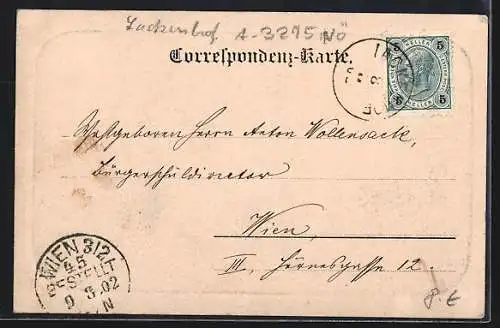 Lackenhof A-3295 NÖ
Correspondenz-Karte.
5 HELLER 5
5 HELLER 5
LACK
OF
Wohlgeboren Herrn Anton Wollensack,
Bürgerschuldirector
Wien
III, Hörnesgasse 12.
WIEN 3/2
BESTELLT
9 3.02
N